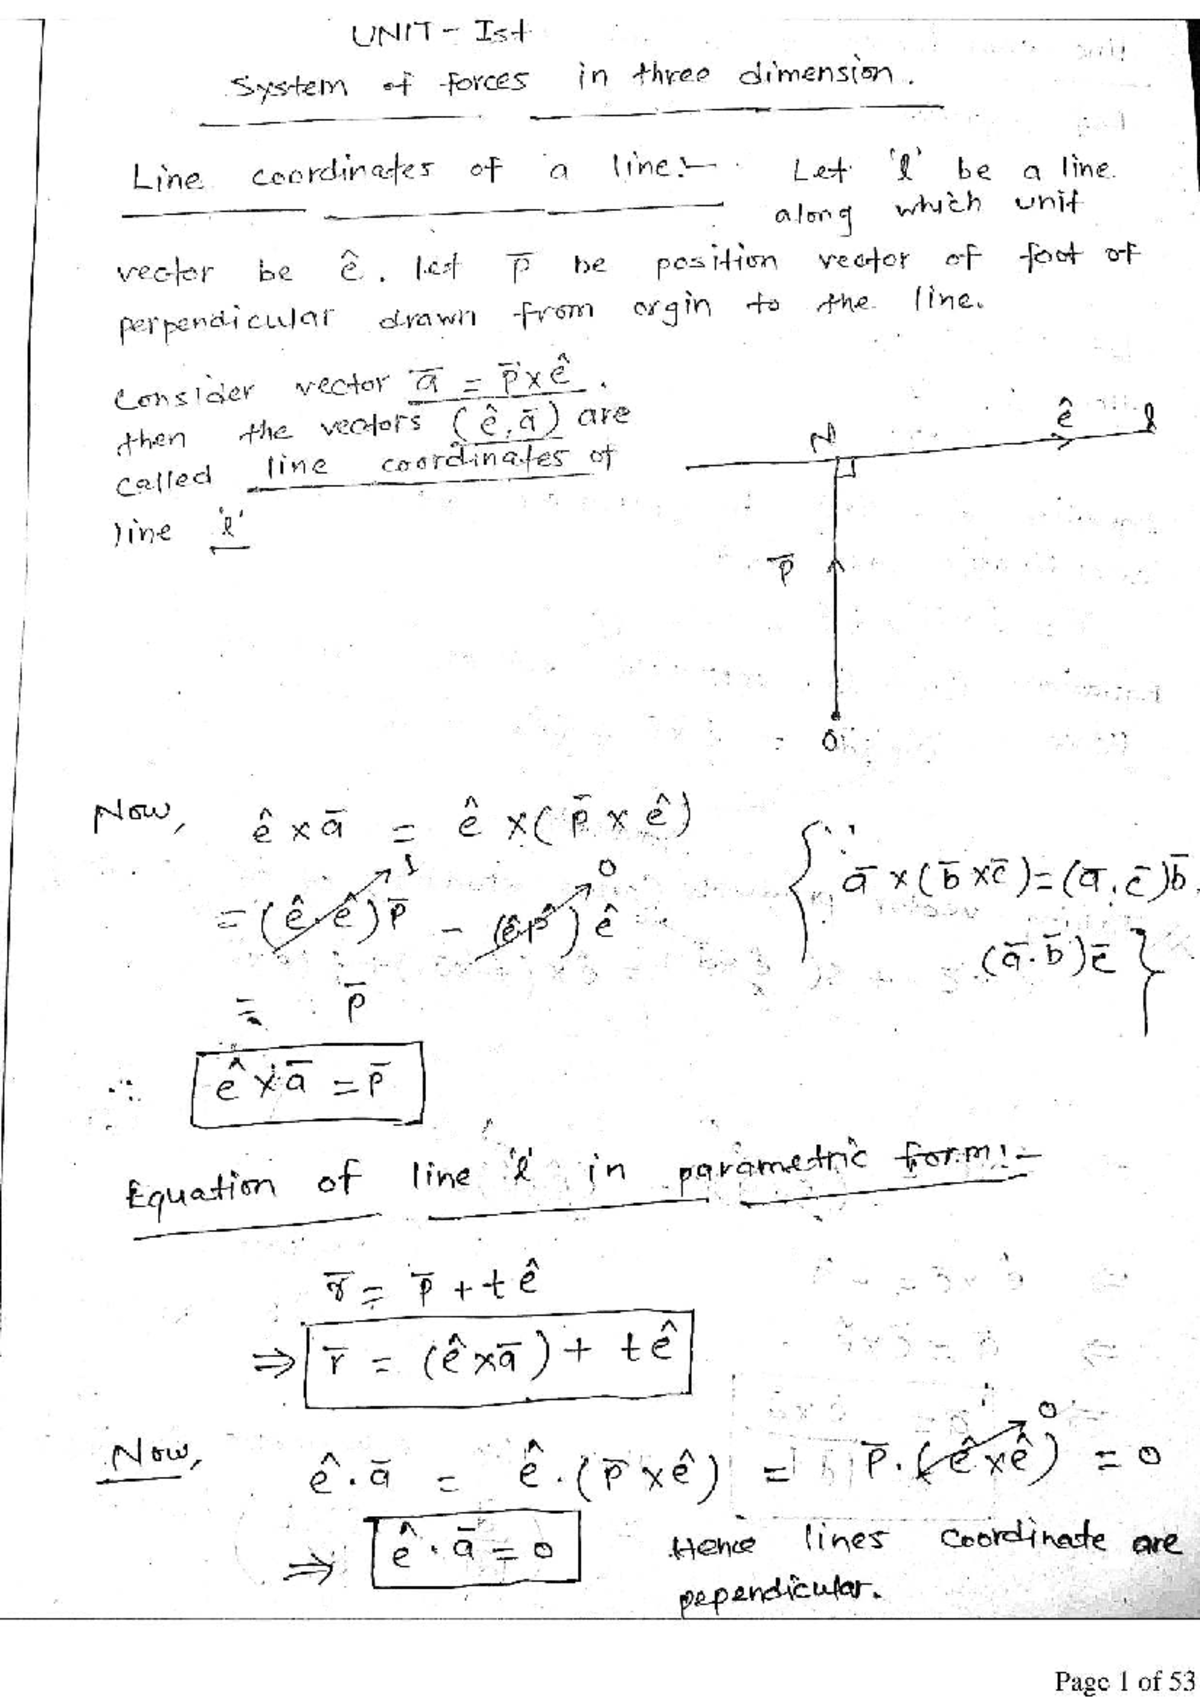 UNIT - Ist
System of forces in three dimension.
Line coordinates of a line:- Let 'l' be a line
along which unit
vector be ê. let p̄ be position vector of foot of
perpendicular drawn from orgin to the line.
Consider vector ā = p̄ × ê.
then the vectors (ê, ā) are
called line coordinates of
line 'l'
N ê l
p̄
O
Now, ê × ā = ê × (p̄ × ê)
= (ê·ê)p̄ - (ê·p̄)ê
1 0
{∵ ā × (b̄ × c̄) = (ā·c̄)b̄ -
(ā·b̄)c̄}
= p̄
∴ ê × ā = p̄
Equation of line 'l' in parametric form:-
r̄ = p̄ + tê
⇒ r̄ = (ê × ā) + tê
Now, ê·ā = ê·(p̄ × ê) = p̄·(ê × ê) = 0
0
⇒ ê·ā = 0 Hence lines coordinate are
pependicular.
Page 1 of 53